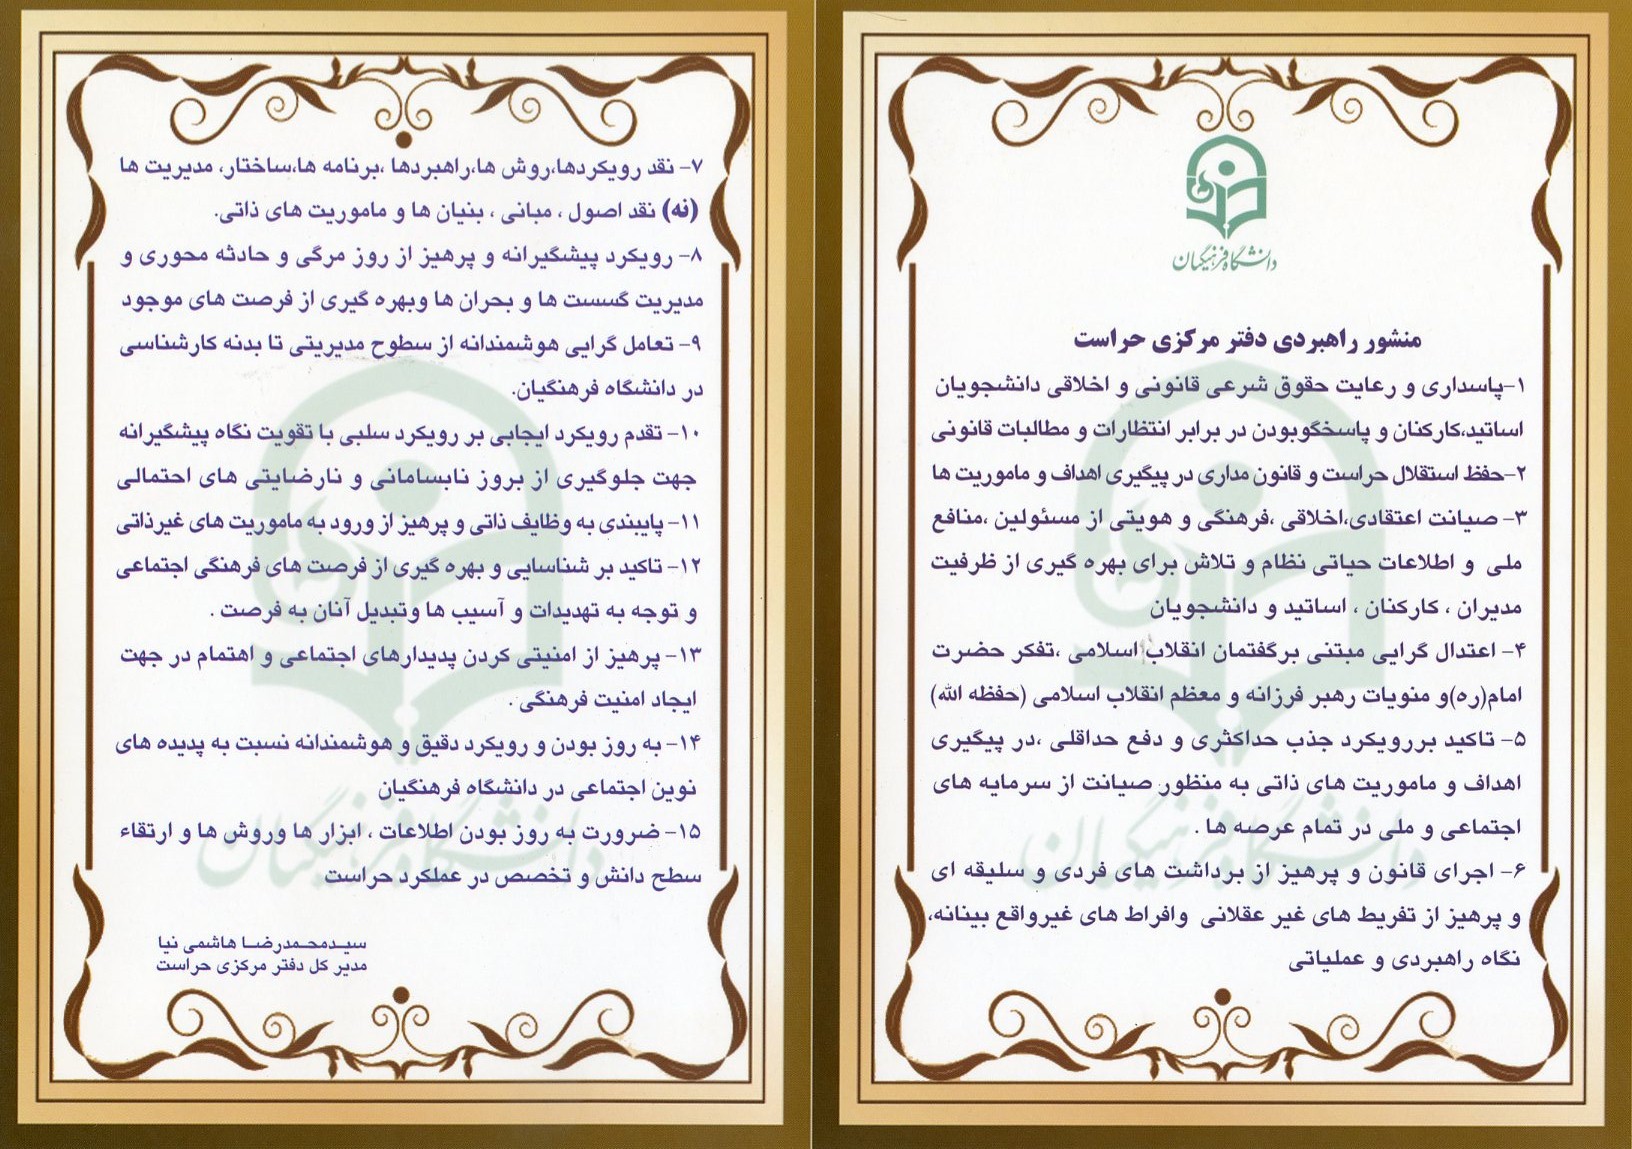 دانشگاه فرهنگیان
منشور راهبردی دفتر مرکزی حراست
۱-پاسداری و رعایت حقوق شرعی قانونی و اخلاقی دانشجویان
اساتید،کارکنان و پاسخگوبودن در برابر انتظارات و مطالبات قانونی
۲-حفظ استقلال حراست و قانون مداری در پیگیری اهداف و ماموریت ها
۳- صیانت اعتقادی،اخلاقی ،فرهنگی و هویتی از مسئولین ،منافع
ملی و اطلاعات حیاتی نظام و تلاش برای بهره گیری از ظرفیت
مدیران ، کارکنان ، اساتید و دانشجویان
۴- اعتدال گرایی مبتنی برگفتمان انقلاب اسلامی ،تفکر حضرت
امام(ره)و منویات رهبر فرزانه و معظم انقلاب اسلامی (حفظه الله)
۵- تاکید بررویکرد جذب حداکثری و دفع حداقلی ،در پیگیری
اهداف و ماموریت های ذاتی به منظور صیانت از سرمایه های
اجتماعی و ملی در تمام عرصه ها .
۶- اجرای قانون و پرهیز از برداشت های فردی و سلیقه ای
و پرهیز از تفریط های غیر عقلانی وافراط های غیرواقع بینانه،
نگاه راهبردی و عملیاتی
دانشگاه فرهنگیان
۷- نقد رویکردها،روش ها،راهبردها ،برنامه ها،ساختار، مدیریت ها
(نه) نقد اصول ، مبانی ، بنیان ها و ماموریت های ذاتی.
۸- رویکرد پیشگیرانه و پرهیز از روز مرگی و حادثه محوری و
مدیریت گسست ها و بحران ها وبهره گیری از فرصت های موجود
۹- تعامل گرایی هوشمندانه از سطوح مدیریتی تا بدنه کارشناسی
در دانشگاه فرهنگیان.
۱۰- تقدم رویکرد ایجابی بر رویکرد سلبی با تقویت نگاه پیشگیرانه
جهت جلوگیری از بروز نابسامانی و نارضایتی های احتمالی
۱۱- پایبندی به وظایف ذاتی و پرهیز از ورود به ماموریت های غیرذاتی
۱۲- تاکید بر شناسایی و بهره گیری از فرصت های فرهنگی اجتماعی
و توجه به تهدیدات و آسیب ها وتبدیل آنان به فرصت .
۱۳- پرهیز از امنیتی کردن پدیدارهای اجتماعی و اهتمام در جهت
ایجاد امنیت فرهنگی .
۱۴- به روز بودن و رویکرد دقیق و هوشمندانه نسبت به پدیده های
نوین اجتماعی در دانشگاه فرهنگیان
۱۵- ضرورت به روز بودن اطلاعات ، ابزار ها وروش ها و ارتقاء
سطح دانش و تخصص در عملکرد حراست
دانشگاه فرهنگیان
سیدمحمدرضا هاشمی نیا
مدیر کل دفتر مرکزی حراست